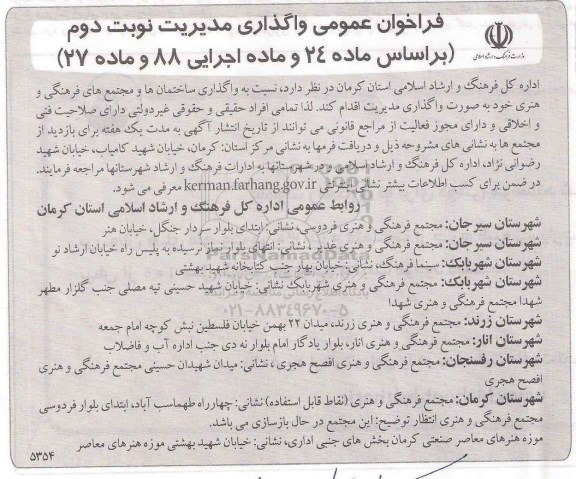 فراخوان عمومی واگذاری مدیریت نوبت دوم
(براساس ماده ۲۴ و ماده اجرایی ۸۸ و ماده ۲۷)
وزارت فرهنگ و ارشاد اسلامی
اداره کل فرهنگ و ارشاد اسلامی استان کرمان در نظر دارد، نسبت به واگذاری ساختمان ها و مجتمع های فرهنگی و
هنری خود به صورت واگذاری مدیریت اقدام کند. لذا تمامی افراد حقیقی و حقوقی غیردولتی دارای صلاحیت فنی
و اخلاقی و دارای مجوز فعالیت از مراجع قانونی می توانند از تاریخ انتشار آگهی به مدت یک هفته برای بازدید از
مجتمع ها به نشانی های مشروحه ذیل و دریافت فرمها به نشانی مرکز استان: کرمان، خیابان شهید کامیاب، خیابان شهید
رضوانی نژاد، اداره کل فرهنگ و ارشاد اسلامی و در شهرستانها به ادارات فرهنگ و ارشاد شهرستانها مراجعه فرمایند.
در ضمن برای کسب اطلاعات بیشتر نشانی اینترنتی kerman.farhang.gov.ir معرفی می شود.
روابط عمومی اداره کل فرهنگ و ارشاد اسلامی استان کرمان
شهرستان سیرجان: مجتمع فرهنگی و هنری فردوسی، نشانی: ابتدای بلوار سردار جنگل، خیابان هنر
شهرستان سیرجان: مجتمع فرهنگی و هنری غدیر ، نشانی : انتهای بلوار نماز نرسیده به پلیس راه خیابان ارشاد نو
شهرستان شهربابک: سینما فرهنگ، نشانی: خیابان بهار جنب کتابخانه شهید بهشتی
شهرستان شهربابک: مجتمع فرهنگی و هنری شهربابک نشانی: خیابان شهید حسینی تپه مصلی جنب گلزار مطهر
شهدا مجتمع فرهنگی و هنری شهدا
شهرستان زرند: مجتمع فرهنگی و هنری زرند، میدان ۲۲ بهمن خیابان فلسطین نبش کوچه امام جمعه
شهرستان انار: مجتمع فرهنگی و هنری انار، بلوار یادگار امام بلوار نه دی جنب اداره آب و فاضلاب
شهرستان رفسنجان: مجتمع فرهنگی و هنری افصح هجری ، نشانی: میدان شهیدان حسینی مجتمع فرهنگی و هنری
افصح هجری
شهرستان کرمان: مجتمع فرهنگی و هنری (نقاط قابل استفاده) نشانی: چهارراه طهماسب آباد، ابتدای بلوار فردوسی
مجتمع فرهنگی و هنری انتظار توضیح: این مجتمع در حال بازسازی می باشد.
موزه هنرهای معاصر صنعتی کرمان بخش های جنبی اداری، نشانی: خیابان شهید بهشتی موزه هنرهای معاصر
۵۳۵۴
ParsNamadData
۰۲۱-۸۸۳۴۹۶۷۰-۵